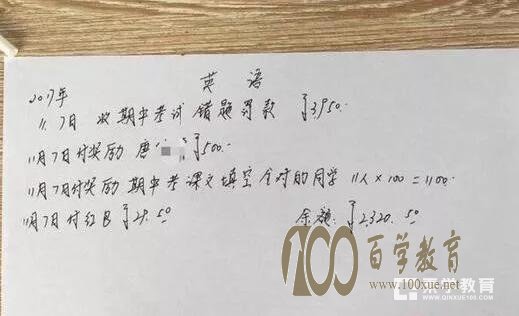 英语
2017年
11.7日 收期中考试错题罚款 ¥3950.
11月7日付奖励 唐 ¥500.
11月7日付奖励 期中考课文填空全对的同学 11人×100=1100.
11月7日付红包 ¥29.50 余额:¥2,320.50
100百学教育
www.100xue.net
亲学教育
WWW.QINXUE100.COM